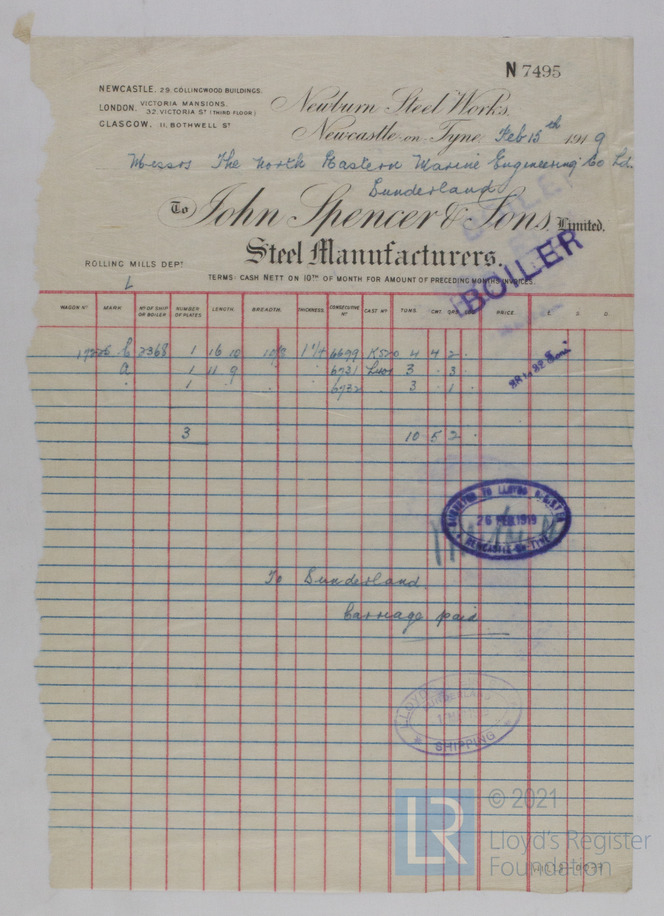 N 7495
NEWCASTLE. 29. COLLINGWOOD BUILDINGS.
LONDON. VICTORIA MANSIONS.
32. VICTORIA ST (THIRD FLOOR)
GLASGOW. 11. BOTHWELL ST
Newburn Steel Works.
Newcastle-on-Tyne, Feb 15th 1919
Messrs The North Eastern Marine Engineering Co Ld.
Sunderland
To John Spencer & Sons, Limited.
Steel Manufacturers.
BOILER
ROLLING MILLS DEPT
TERMS: CASH NETT ON 10TH OF MONTH FOR AMOUNT OF PRECEDING MONTHS INVOICES.
L
WAGON No MARK. No OF SHIP OR BOILER. NUMBER OF PLATES. LENGTH. BREADTH. THICKNESS. CONSECUTIVE No CAST No TONS. CWT. QRS. PRICE. £. S. D.
2368 1 16 10 6699 K520 4 4 2 .
a 1 11 9 6731 3 . 3 .
1 6732 3 . 1 .
28 to 32 Tons
3 10 5 2 .
SURVEYOR TO LLOYDS REGISTER
26 FEB.1919
NEWCASTLE-ON-TYNE
To Sunderland
Carriage paid
LLOYDS
SHIPPING
LR
© 2021
Lloyd's Register
Foundation